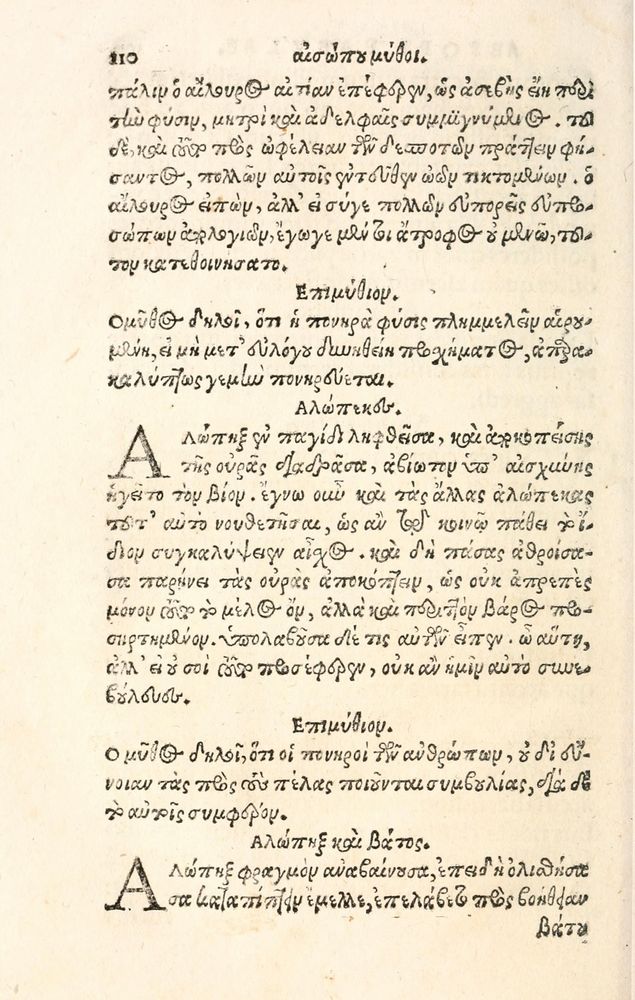 110 αἰσώπου μύθοι.
πάλιν ὁ αἴλουρος αἰτίαν ἐπέφερεν, ὡς ἀσεβὴς εἴη περὶ
τὴν φύσιν, μητρὶ καὶ ἀδελφαῖς συμμιγνύμενος. τοῦ
δὲ, καὶ τοῦτο πρὸς ὠφέλειαν τῶν δεσποτῶν πράττειν φή-
σαντος, πολλῶν αὐτοῖς ἐντεῦθεν ὠῶν τικτομένων. ὁ
αἴλουρος εἰπὼν, ἀλλ' εἰ σύγε πολλῶν εὐπορεῖς εὐπρο-
σώπων ἀπολογιῶν, ἔγωγε μέντοι ἄτροφος οὐ μενῶ, τοῦ-
τον κατεθοινήσατο.
Επιμύθιον.
Ο μῦθος δηλοῖ, ὅτι ἡ πονηρὰ φύσις πλημμελεῖν αἱρου-
μένη, εἰ μὴ μετ' εὐλόγου δυνηθείη προσχήματος, ἀπαρα-
καλύπτως γε μὴν πονηρεύεται.
Αλώπεκος.
Αλώπηξ ἐν παγίδι ληφθεῖσα, καὶ ἀποκοπείσης
τῆς οὐρᾶς διαδρᾶσα, ἀβίωτον ὑπ' αἰσχύνης
ἡγεῖτο τὸν βίον. ἔγνω οὖν καὶ τὰς ἄλλας ἀλώπεκας
τοῦτ' αὐτὸ νουθετῆσαι, ὡς ἂν τῷ κοινῷ πάθει τὸ ἴ-
διον συγκαλύψειεν αἶσχος. καὶ δὴ πάσας ἀθροίσα-
σα παρῄνει τὰς οὐρὰς ἀποκόπτειν, ὡς οὐκ ἀπρεπὲς
μόνον τοῦτο τὸ μέλος ὂν, ἀλλὰ καὶ περιττὸν βάρος προ-
σηρτημένον. ὑπολαβοῦσα δέ τις αὐτῶν εἶπεν. ὦ αὕτη,
ἀλλ' εἰ οὐ σοὶ τοῦτο προσέφερεν, οὐκ ἂν ἡμῖν αὐτὸ συνε-
βούλευες.
Επιμύθιον.
Ο μῦθος δηλοῖ, ὅτι οἱ πονηροὶ τῶν ἀνθρώπων, οὐ δι' εὔ-
νοιαν τὰς πρὸς τοὺς πέλας ποιοῦνται συμβουλίας, διὰ δὲ
τὸ αὑτοῖς συμφέρον.
Αλώπηξ καὶ βάτος.
Αλώπηξ φραγμὸν ἀναβαίνουσα, ἐπειδὴ ὀλισθήσα-
σα καταπίπτειν ἔμελλε, ἐπελάβετο πρὸς βοήθειαν
βάτου